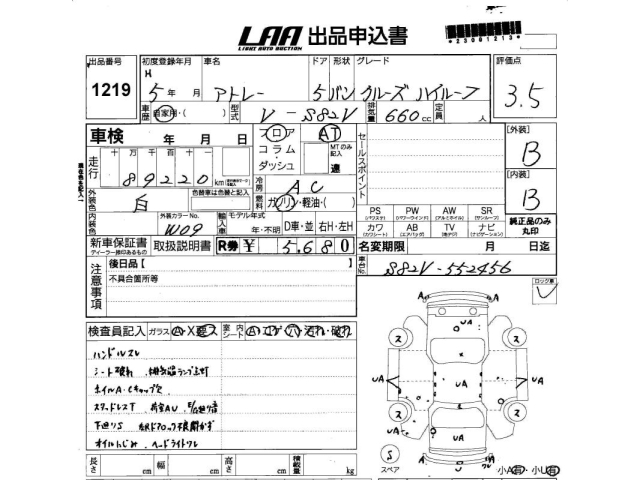 LAA 出品申込書
LIGHT AUTO AUCTION
*23001213*
出品番号 初度登録年月 車名 ドア 形状 グレード 評価点
H
1219 5 年 月 アトレー 5 バン クルーズ ハイルーフ 3.5
車歴 自家用・( ) 型式 V-S82V 排気量 660 cc 定員 人
車検 年 月 日 フロア AT
コラム MTのみ記入
ダッシュ 速
セールスポイント
[外装] B
[内装] B
走行 十 万 千 百 十 一
89220 km
冷房 AC
燃料 ガソリン・軽油・( )
外装色 白 色替車は色替と記入
内装色 外装カラーNo. W09 輸入車 モデル年式 年・不明 D車・並 右H・左H
PS PW AW SR
(パワステ) (パワーウインド) (アルミホイル) (サンルーフ)
カワ AB TV ナビ
(カワシート) (エアバッグ) (地デジ) (ナビゲーション)
純正品のみ丸印
新車保証書 取扱説明書 R券 ¥ 5,680 名変期限 月 日迄
ディーラー捺印あるもの
注意事項 後日品[ ]
不具合箇所等
車台No. S82V-552456
ロック車
検査員記入 ガラス A・X要ス 室内シート A・コゲ・穴・汚れ・破れ
ハンドルスレ
シート破れ
ホイルA・Cキャップ欠
スタッドレスT
下廻りS
オイルにじみ ヘードライトワレ
長さ cm 幅 cm 高さ cm 積載量 kg
A A
UA
ス ス
UA UA UA
ス ス
UA
S
スペア
UA
小A有・小U有